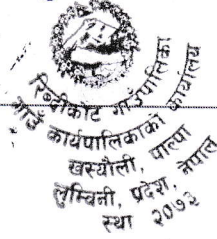 रिब्दीकोट गाउँपालिका
गाउँ कार्यपालिकाको कार्यालय
खस्यौली, पाल्पा
लुम्बिनी, प्रदेश, नेपाल
स्था २०७२